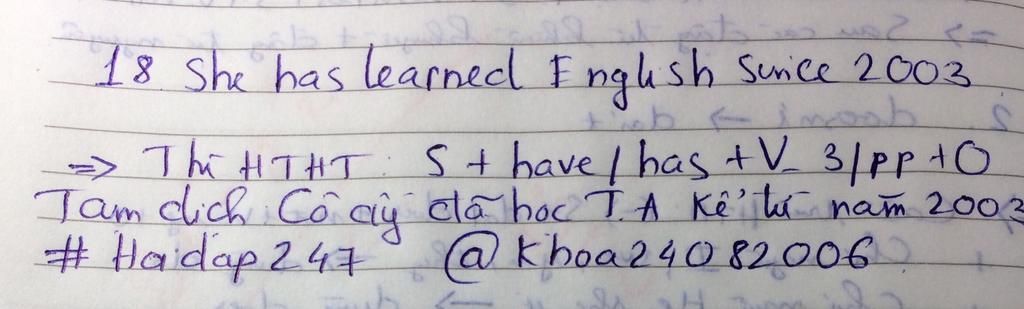 18. She has learned English sunice 2003
=> Thì HTHT: S + have / has + V_3/pp + O
Tam dich: Cô ấy đã hoc T.A kể từ năm 2003
# Hoidap247 @Khoa24082006